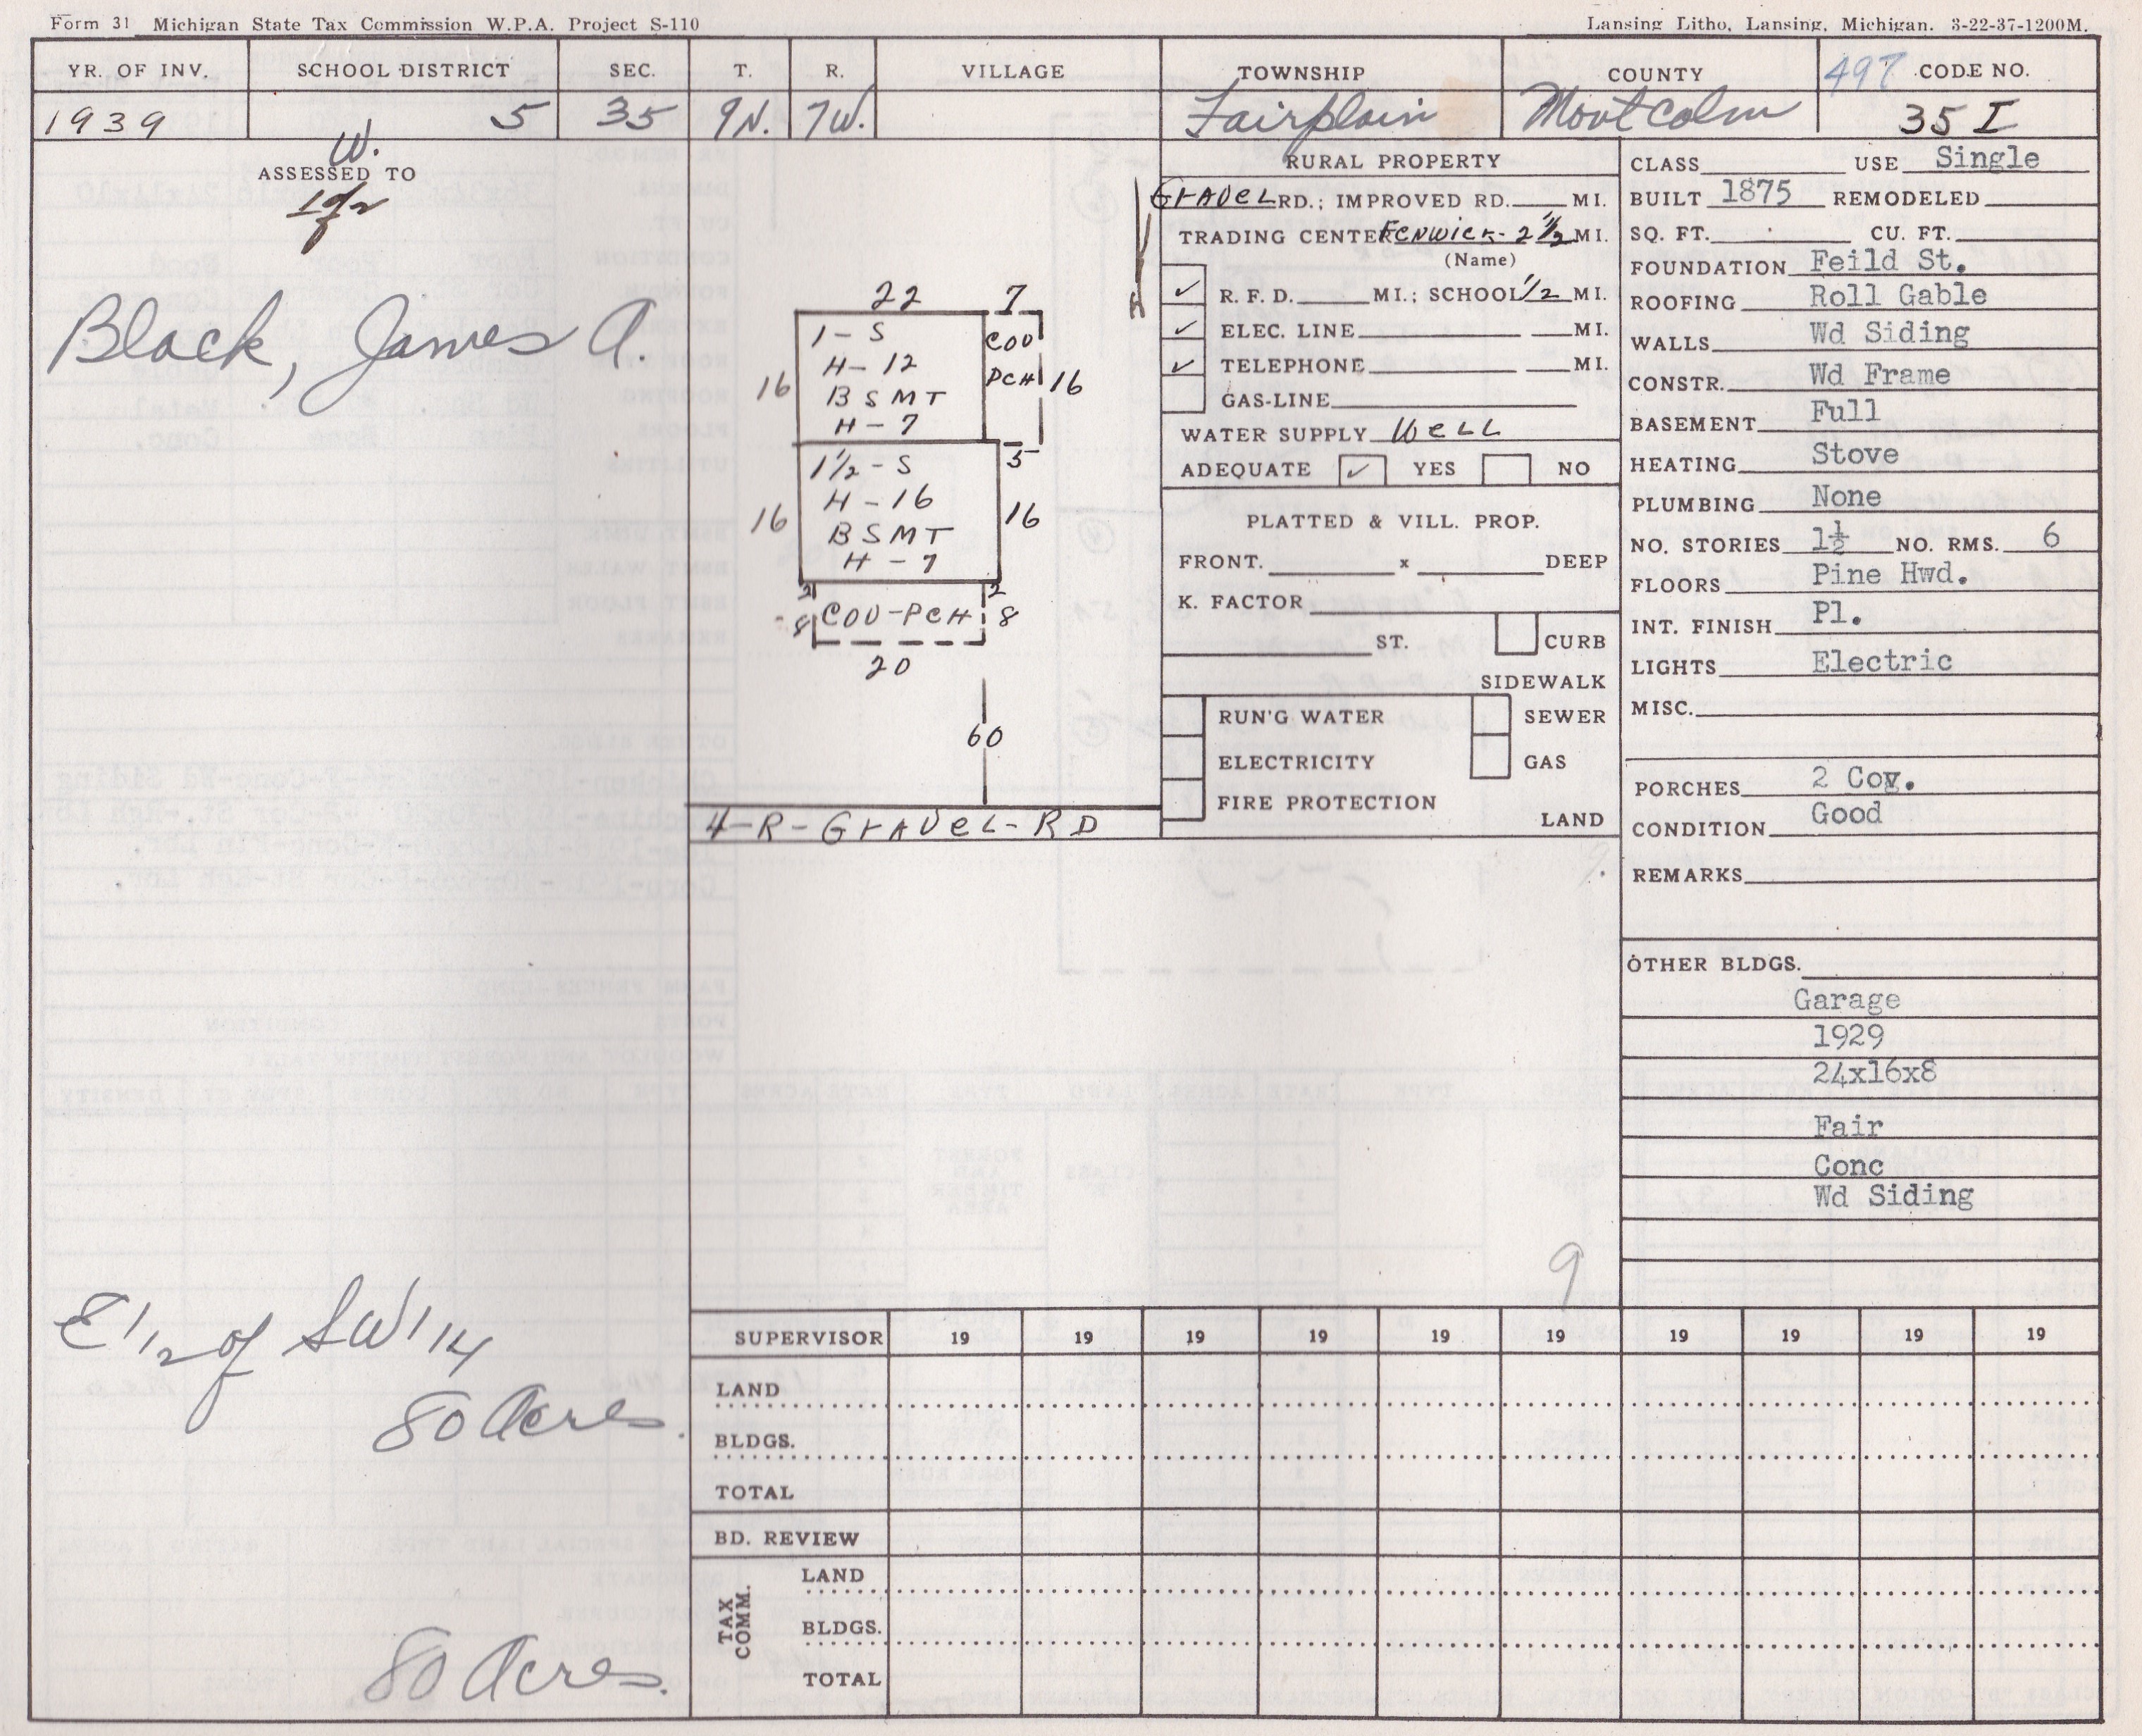 Form 31 Michigan State Tax Commission W.P.A. Project S-110
Lansing Litho, Lansing, Michigan. 3-22-37-1200M.
YR. OF INV. SCHOOL DISTRICT SEC. T. R. VILLAGE TOWNSHIP COUNTY 497 CODE NO.
1939 5 35 9N. 7W. Fairplain Montcalm 35 I
W.
ASSESSED TO
1 of 2
Black, James A.
E 1/2 of SW 1/4
80 Acres.
80 Acres.
22 7
1-S
H-12
BSMT
H-7
COV
PCH
16 16
1½-S
H-16
BSMT
H-7
5
16 16
2 2
8 COV-PCH 8
20
60
4-R-GRAVEL-RD
RURAL PROPERTY
GRAVEL RD.; IMPROVED RD. MI.
TRADING CENTER FENWICK-2½ MI.
(Name)
✓ R. F. D. MI.; SCHOOL 1/2 MI.
✓ ELEC. LINE MI.
✓ TELEPHONE MI.
GAS-LINE
WATER SUPPLY WELL
ADEQUATE ✓ YES NO
PLATTED & VILL. PROP.
FRONT. x DEEP
K. FACTOR
ST. CURB
SIDEWALK
RUN'G WATER SEWER
ELECTRICITY GAS
FIRE PROTECTION
LAND
9
CLASS USE Single
BUILT 1875 REMODELED
SQ. FT. CU. FT.
FOUNDATION Feild St.
ROOFING Roll Gable
WALLS Wd Siding
CONSTR. Wd Frame
BASEMENT Full
HEATING Stove
PLUMBING None
NO. STORIES 1½ NO. RMS. 6
FLOORS Pine Hwd.
INT. FINISH Pl.
LIGHTS Electric
MISC.
PORCHES 2 Cov.
CONDITION Good
REMARKS
OTHER BLDGS.
Garage
1929
24x16x8
Fair
Conc
Wd Siding
SUPERVISOR 19 19 19 19 19 19 19 19 19 19
LAND
BLDGS.
TOTAL
BD. REVIEW
TAX COMM.
LAND
BLDGS.
TOTAL